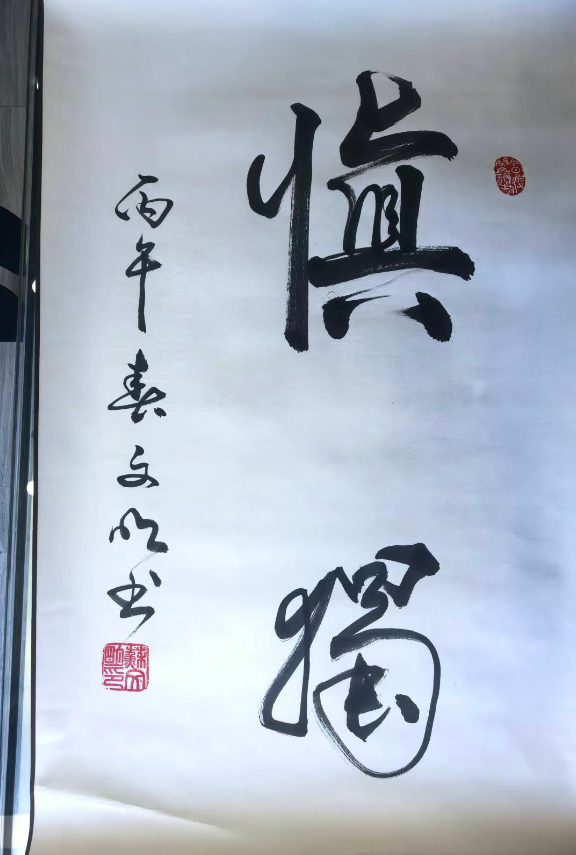 慎獨
丙午春文明书